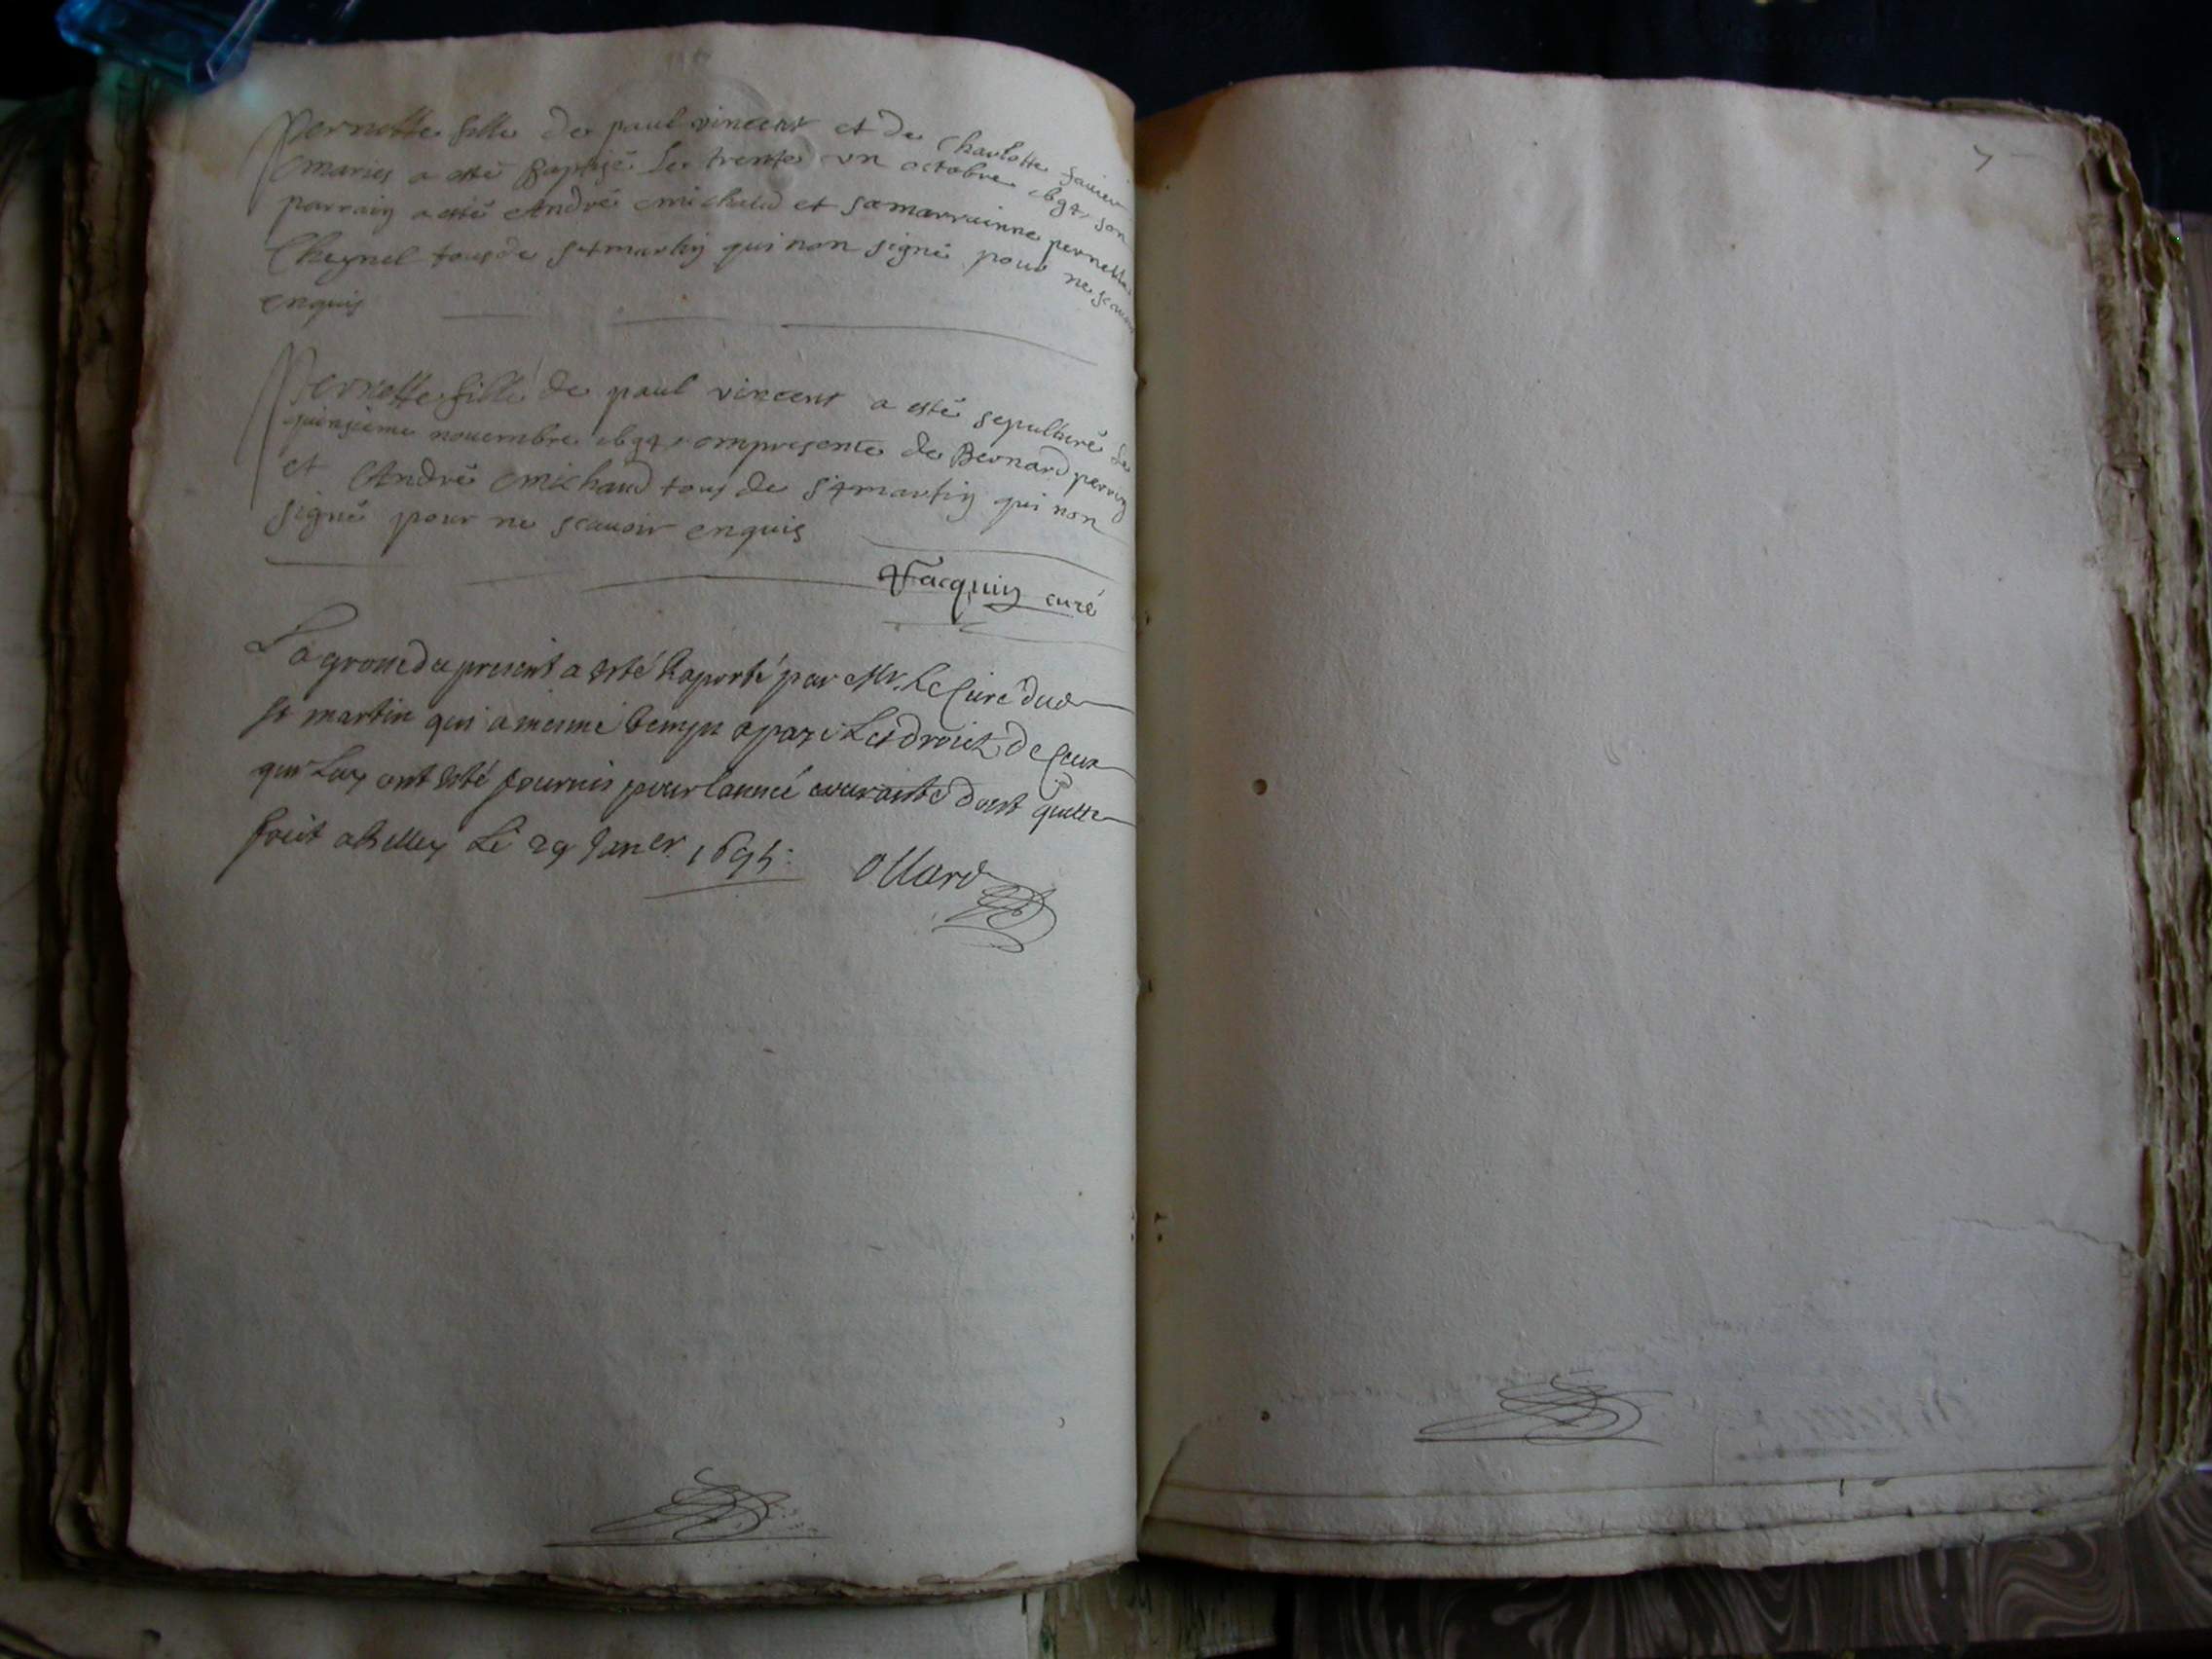 pernette fille de paul vincent et de charlotte
maries a esté baptisé le trente un octobre 1694 son
parrain a esté André michaud et sa marrainne pernette
Cheynel tous de st martin qui non signé pour ne scavoir
enquis
pernette fille de paul vincent a esté sepulturé le
quinzieme novembre 1694 en presence de Bernard perrin
et André michaud tous de st martin qui non
signé pour ne scavoir enquis
Jacquin curé
La du present a esté Raporté par Mr. Le Curé dud
st martin qui a mesme temps a payé Les droits de Ceux
qui Luy ont esté fournis pour lannée courante dont quitte
fait a Belley Le 29 Janer. 1695:
Ollard
7